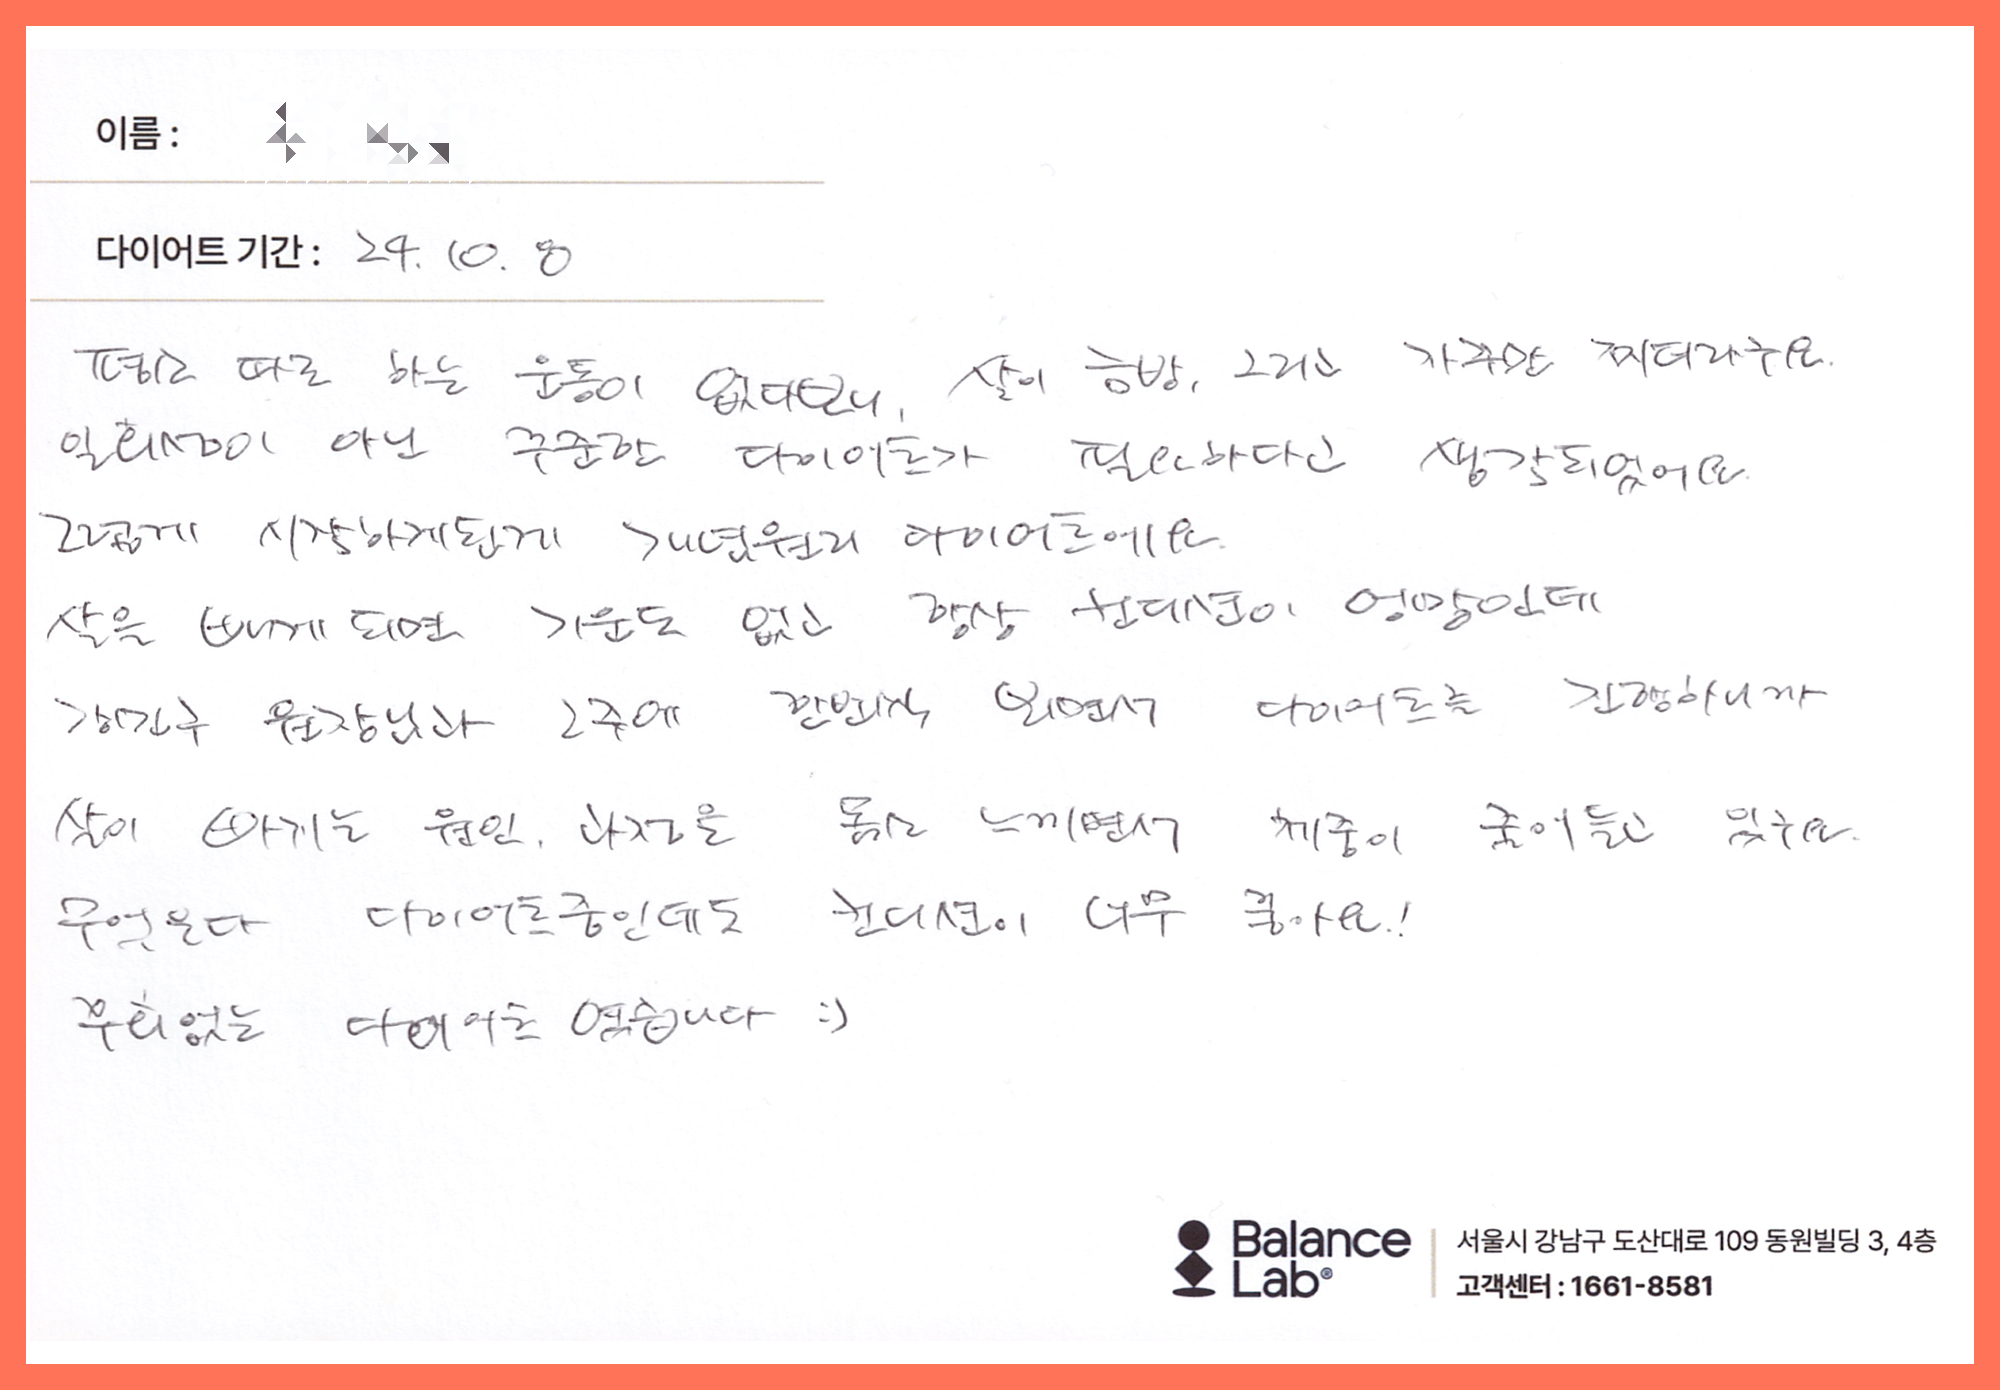 이름 :
다이어트 기간 : 24. 10. 8
평소 따로 하는 운동이 없다보니, 살이 금방, 그리고 자꾸만 찌더라구요.
일회성이 아닌 꾸준한 다이어트가 필요하다고 생각되었어요.
그렇게 시작하게된게 개념원리 다이어트에요.
살을 빼게 되면 기운도 없고 항상 컨디션이 엉망인데
원장님과 2주에 한번씩 뵈면서 다이어트를 진행하니까
살이 빠지는 원인, 과정을 몸소 느끼면서 체중이 줄어들고 있구요.
무엇보다 다이어트중인데도 컨디션이 너무 좋아요.!
후회없는 다이어트 였습니다 :)
Balance Lab®
서울시 강남구 도산대로 109 동원빌딩 3, 4층
고객센터 : 1661-8581